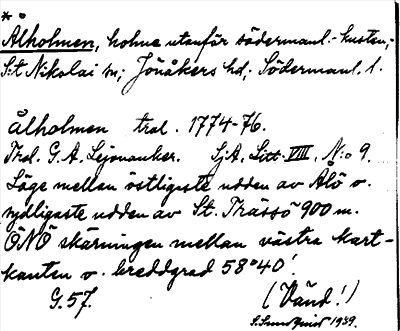 *°
Ålholmen, holme utanför södermanl.-kusten,-
S:t Nikolai sn; Jönåkers hd; Södermanl. l.
Ålholmen tral. 1774-76.
Thol. G. A. Lejonanker. SjA. Litt. VIII. N:o 9.
Läge mellan östligaste udden av Ålö o.
sydligaste udden av St. Träsö 900 m.
ÖNÖ skärningen mellan västra kart-
kanten o. breddgrad 58°40'.
G. 57. (Vänd!)
S. Sundquist 1949.